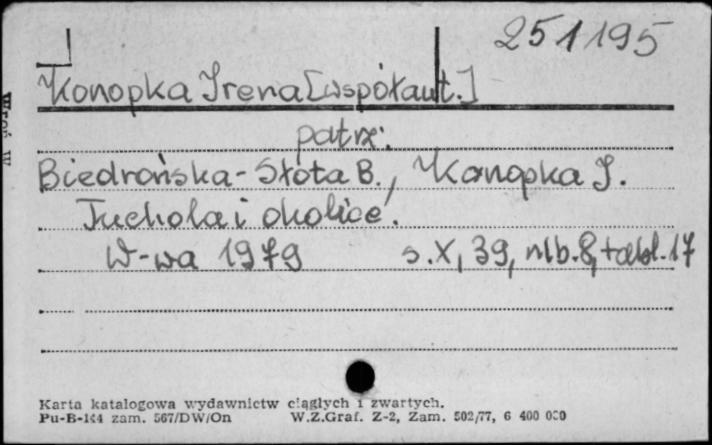 251195
Konopka Irena [współaut.]
patrz:
Biedrońska-Słota B., Konopka I.
Tuchola i okolice.
W-wa 1979 s. X, 39, nlb. 8, tabl. 17
Karta katalogowa wydawnictw ciągłych i zwartych.
Pu-B-144 zam. 567/DW/On W.Z.Graf. Z-2, Zam. 502/77, 6 400 000